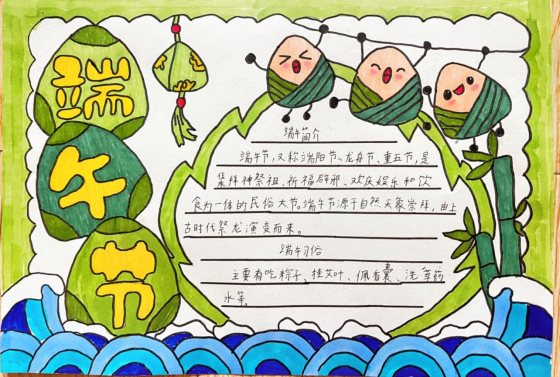 端
午
节
端午简介
端午节，又称端阳节、龙舟节、重五节，是
集拜神祭祖、祈福辟邪、欢庆娱乐和饮
食为一体的民俗大节。端午节源于自然天象崇拜，由上
古时代祭龙演变而来。
端午习俗
主要有吃粽子、挂艾叶、佩香囊、洗草药
水等。